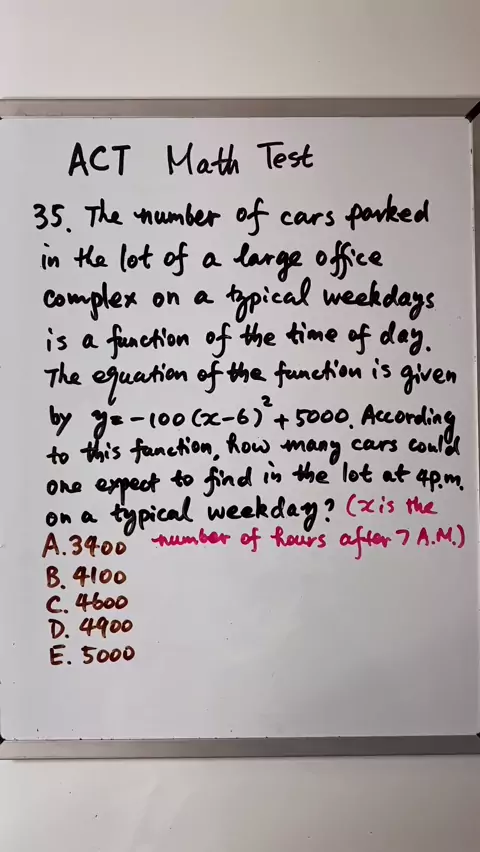 ACT Math Test
35. The number of cars parked
in the lot of a large office
complex on a typical weekdays
is a function of the time of day.
The equation of the function is given
by y=-100(x-6)²+5000. According
to this function, how many cars could
one expect to find in the lot at 4p.m.
on a typical weekday? (x is the
number of hours after 7 A.M.)
A. 3400
B. 4100
C. 4600
D. 4900
E. 5000